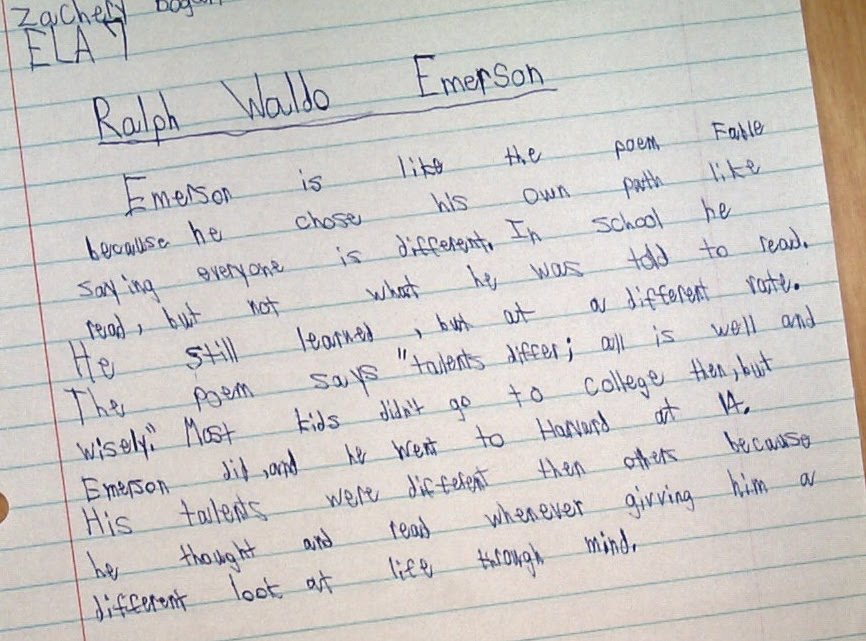 Zachery Bogan
ELA 7
Ralph Waldo Emerson
Emerson is like the poem Fable
because he chose his own path like
saying everyone is different. In school he
read, but not what he was told to read.
He still learned, but at a different rate.
The poem says "talents differ; all is well and
wisely." Most kids didn't go to college then, but
Emerson did, and he went to Harvard at 14.
His talents were different then others because
he thought and read whenever givving him a
different look at life through mind.